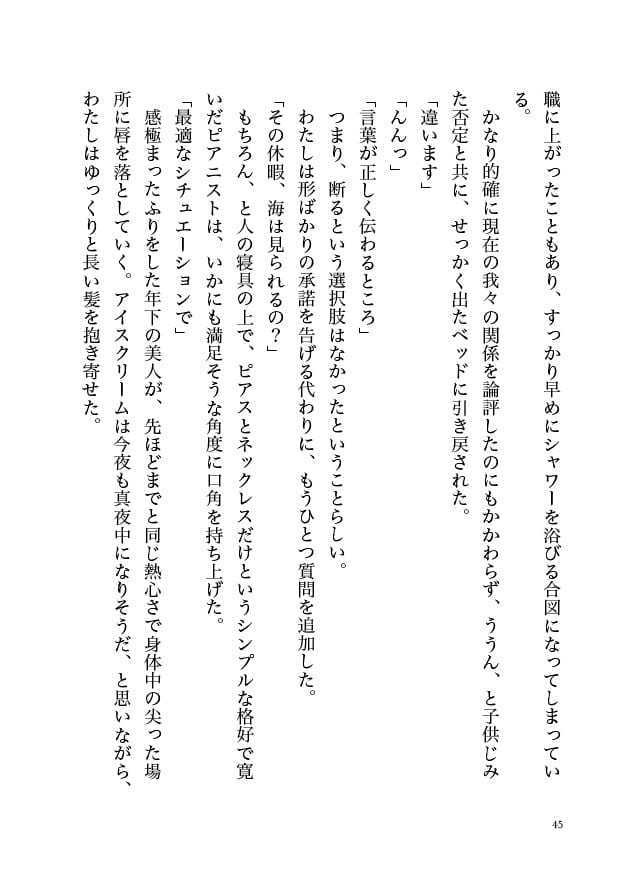 職に上がったこともあり、すっかり早めにシャワーを浴びる合図になってしまってい
る。
　かなり的確に現在の我々の関係を論評したのにもかかわらず、ううん、と子供じみ
た否定と共に、せっかく出たベッドに引き戻された。
「違います」
「んんっ」
「言葉が正しく伝わるところ」
　つまり、断るという選択肢はなかったということらしい。
　わたしは形ばかりの承諾を告げる代わりに、もうひとつ質問を追加した。
「その休暇、海は見られるの？」
　もちろん、と人の寝具の上で、ピアスとネックレスだけというシンプルな格好で寛
いだピアニストは、いかにも満足そうな角度に口角を持ち上げた。
「最適なシチュエーションで」
　感極まったふりをした年下の美人が、先ほどまでと同じ熱心さで身体中の尖った場
所に唇を落としていく。アイスクリームは今夜も真夜中になりそうだ、と思いながら、
わたしはゆっくりと長い髪を抱き寄せた。
45